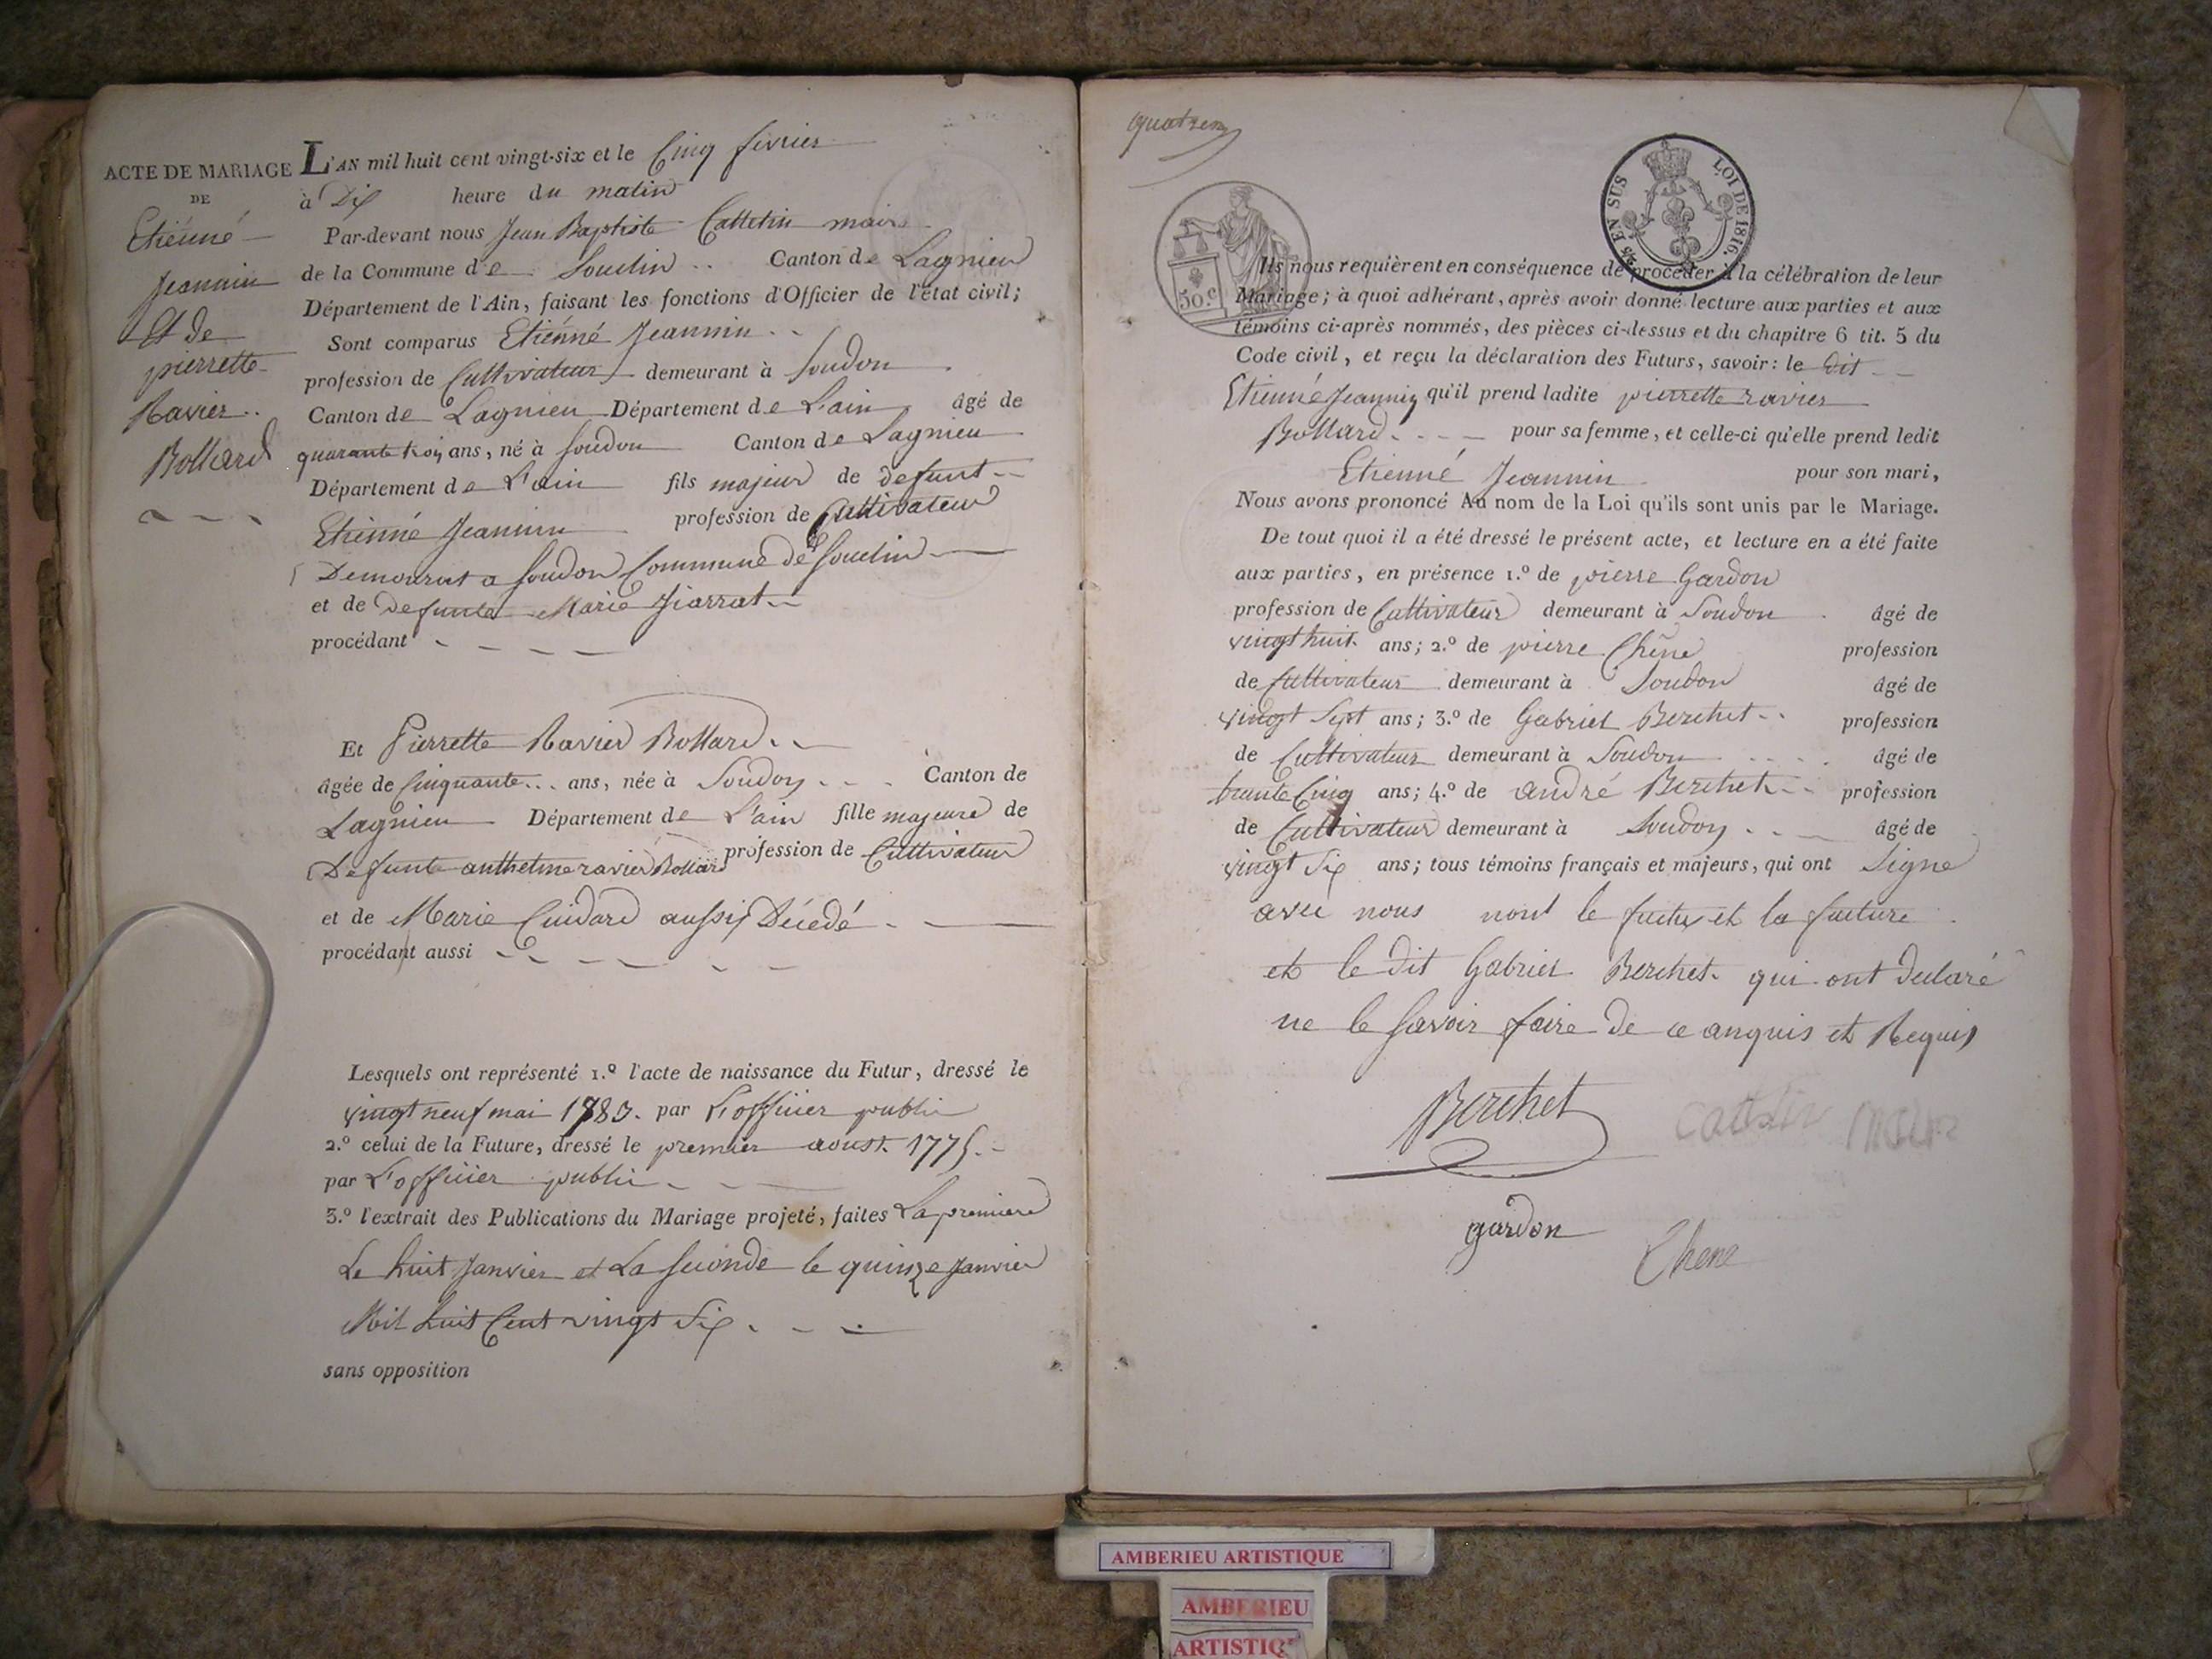 ACTE DE MARIAGE
DE
Etienné
Jeannin
Et de
pierrette
Ravier
Bollard
L'AN mil huit cent vingt-six et le Cinq fevrier
à Dix heure du matin
Par-devant nous Jean Baptiste Cattetin maire
de la Commune de Souclin Canton de Lagnieu
Département de l'Ain, faisant les fonctions d'Officier de l'état civil;
Sont comparus Etienné Jeannin
profession de Cultivateur demeurant à Soudon
Canton de Lagnieu Département de L'ain âgé de
quarante trois ans, né à Soudon Canton de Lagnieu
Département de L'ain fils majeur de defunt
Etienné Jeannin profession de Cultivateur
Demourant a Soudon Commune de Souclin
et de defunte Marie
procédant
Et Pierrette Ravier Bollard
âgée de Cinquante ans, née à Soudon Canton de
Lagnieu Département de L'ain fille majeure de
Defunte anthelme ravier Bollard profession de Cultivateur
et de Marie Cuidard aussi Décedé
procédant aussi
Lesquels ont représenté 1.º l'acte de naissance du Futur, dressé le
vingt neuf mai 1783. par L'officier public
2.º celui de la Future, dressé le premier aoust 1775.
par L'officier public
3.º l'extrait des Publications du Mariage projeté, faites La premiere
Le huit Janvier et La seconde le quinze Janvier
Mil huit Cent vingt Six
sans opposition
quatre
LOI DE 1816.
EN SUS
50.c
Ils nous requièrent en conséquence de procéder à la célébration de leur
Mariage; à quoi adhérant, après avoir donné lecture aux parties et aux
témoins ci-après nommés, des pièces ci-dessus et du chapitre 6 tit. 5 du
Code civil, et reçu la déclaration des Futurs, savoir: le dit
Etienné Jeannin qu'il prend ladite pierrette ravier
Bollard pour sa femme, et celle-ci qu'elle prend ledit
Etienné Jeannin pour son mari,
Nous avons prononcé Au nom de la Loi qu'ils sont unis par le Mariage.
De tout quoi il a été dressé le présent acte, et lecture en a été faite
aux parties, en présence 1.º de pierre Gardon
profession de Cultivateur demeurant à Soudon âgé de
vingt huit ans; 2.º de pierre Chêne profession
de Cultivateur demeurant à Soudon âgé de
vingt Sept ans; 3.º de Gabriel Berthet profession
de Cultivateur demeurant à Soudon âgé de
trante Cinq ans; 4.º de andré Berthet profession
de Cultivateur demeurant à Soudon âgé de
vingt Six ans; tous témoins français et majeurs, qui ont Signé
avec nous nont le futur et la future
et le dit Gabriel Berthet qui ont declaré
ne le Savoir faire de ce anquis et Requis
Berthet
maire
gardon
Chene
AMBERIEU ARTISTIQUE
AMBERIEU
ARTISTIQ